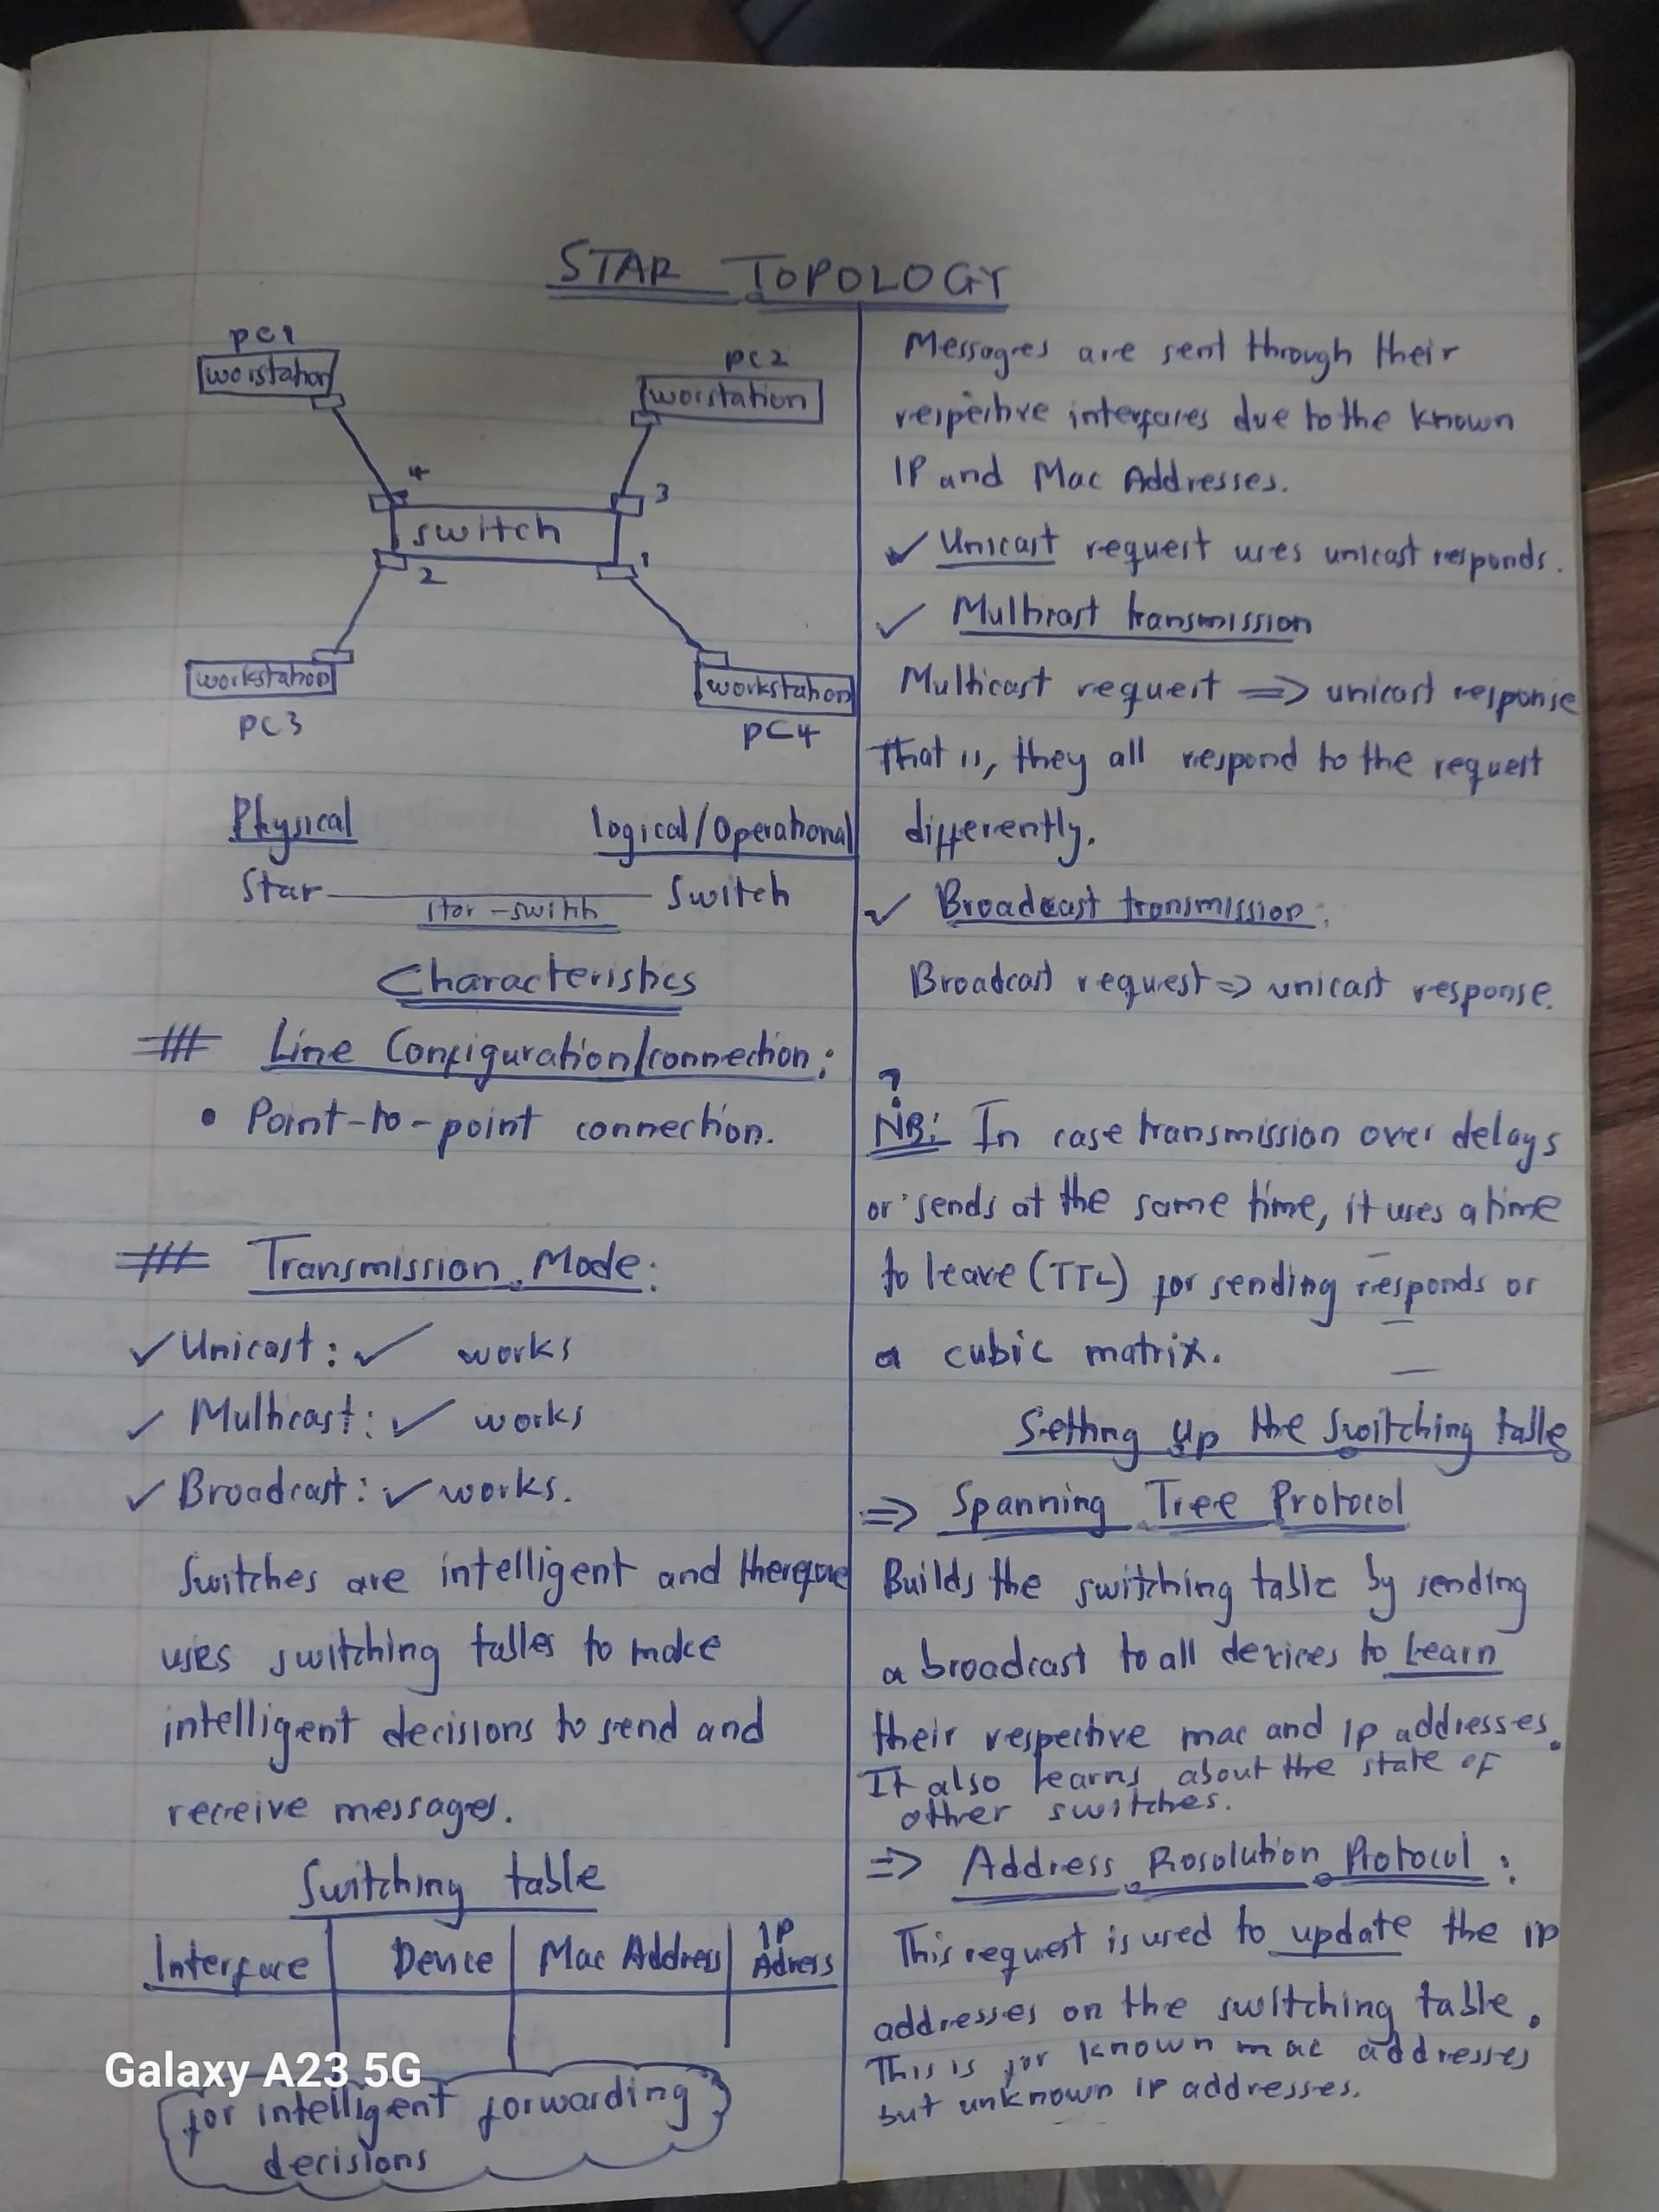 STAR TOPOLOGY
PC1
worstation
PC2
worstation
4
3
switch
2
1
workstation
PC3
workstation
PC4
Physical
logical/Operational
Star
Switch
star-switch
Characteristics
Line Configuration/connection:
• Point-to-point connection.
Transmission Mode:
✓ Unicast: ✓ works
✓ Multicast: ✓ works
✓ Broadcast: ✓ works.
Switches are intelligent and therefore
uses switching tables to make
intelligent decisions to send and
receive messages.
Switching table
Interface Device Mac Address IP Adress
for intelligent forwarding
decisions
Messages are sent through their
respective interfaces due to the known
IP and Mac Addresses.
✓ Unicast request uses unicast responds.
✓ Multicast transmission
Multicast request => unicast response
That is, they all respond to the request
differently.
✓ Broadcast transmission:
Broadcast request => unicast response.
?
NB: In case transmission over delays
or sends at the same time, it uses a time
to leave (TTL) for sending responds or
a cubic matrix.
Setting up the switching table
=> Spanning Tree Protocol
Builds the switching table by sending
a broadcast to all devices to learn
their respective mac and ip addresses.
It also learns about the state of
other switches.
=> Address Rosolution Protocol:
This request is used to update the ip
addresses on the switching table.
This is for known mac addresses
but unknown ip addresses.
Galaxy A23 5G